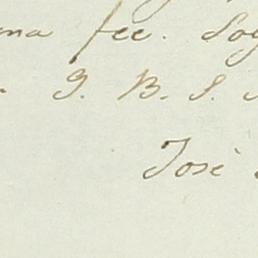 na fee. Soy
J. B. S.
José